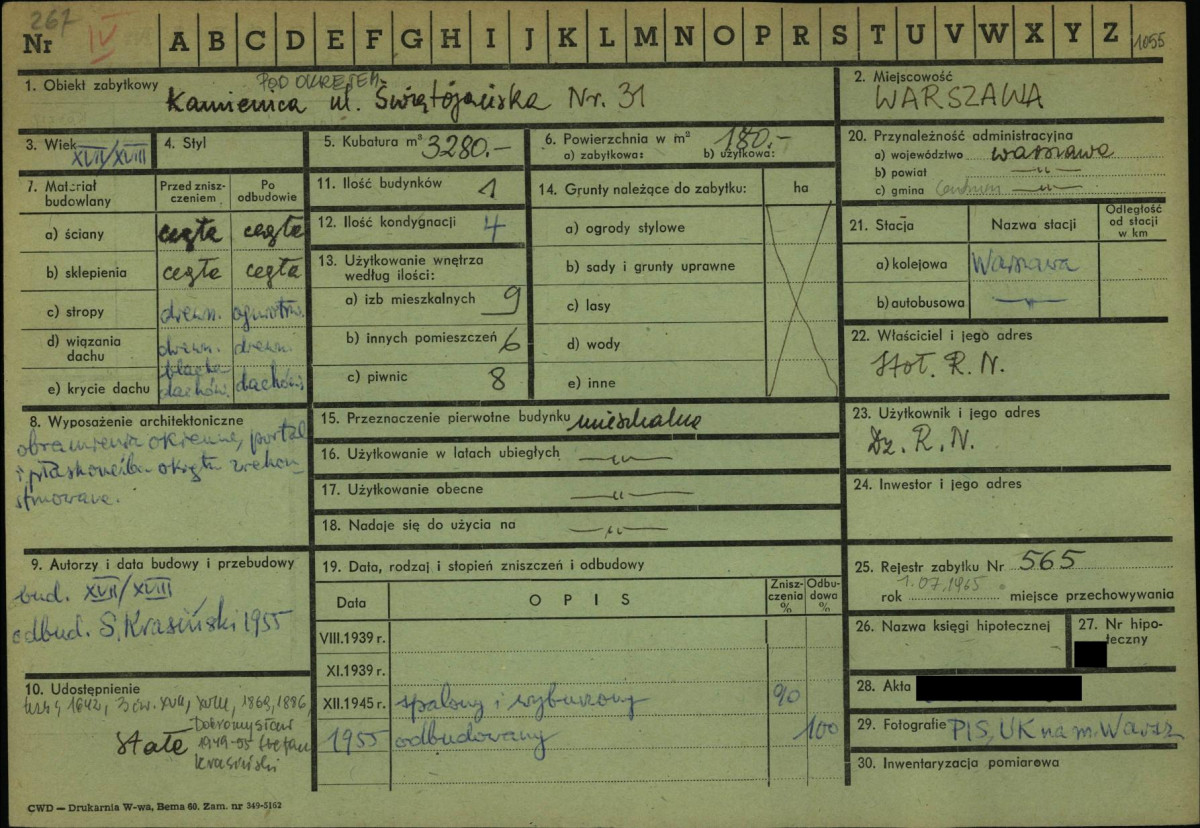 267
Nr IV A B C D E F G H I J K L M N O P R S T U V W X Y Z 1055
1. Obiekt zabytkowy POD OKRĘTEM
Kamienica ul. Świętojańska Nr. 31
2. Miejscowość
WARSZAWA
3. Wiek XVII/XVIII
4. Styl
5. Kubatura m³ 3280.-
6. Powierzchnia w m² 180.-
a) zabytkowa: b) użytkowa:
20. Przynależność administracyjna
a) województwo warszawa
b) powiat —"—
c) gmina Centrum
7. Materiał budowlany
Przed zniszczeniem
Po odbudowie
a) ściany cegła cegła
b) sklepienia cegła cegła
c) stropy drewn. ogniotrw.
d) wiązania dachu drewn. drewn.
e) krycie dachu blacha dachów. dachów.
11. Ilość budynków 1
12. Ilość kondygnacji 4
13. Użytkowanie wnętrza
według ilości:
a) izb mieszkalnych 9
b) innych pomieszczeń 6
c) piwnic 8
14. Grunty należące do zabytku: ha
a) ogrody stylowe
b) sady i grunty uprawne
c) lasy
d) wody
e) inne
21. Stacja Nazwa stacji Odległość od stacji w km
a) kolejowa Warszawa
b) autobusowa —"—
22. Właściciel i jego adres
Stoł. R. N.
8. Wyposażenie architektoniczne
obramienia okienne, portal
i płaskorzeźba okrętu zrekon-
struowane.
15. Przeznaczenie pierwotne budynku mieszkalne
16. Użytkowanie w latach ubiegłych —"—
17. Użytkowanie obecne —"—
18. Nadaje się do użycia na —"—
23. Użytkownik i jego adres
Dz. R. N.
24. Inwestor i jego adres
9. Autorzy i data budowy i przebudowy
bud. XVII/XVIII
odbud. S. Krasiński 1955
19. Data, rodzaj i stopień zniszczeń i odbudowy
Data OPIS Zniszczenia % Odbudowa %
VIII.1939 r.
XI.1939 r.
XII.1945 r. spalony i wyburzony 90
1955 odbudowany 100
25. Rejestr zabytku Nr 565
1.07.1965
rok miejsce przechowywania
26. Nazwa księgi hipotecznej
27. Nr hipoteczny
28. Akta
29. Fotografie PIS, UK na m. Warsz
30. Inwentaryzacja pomiarowa
10. Udostępnienie
1642, 3 ćw. XVII, XVIII, 1869, 1886,
Dobromysław
stałe 1949-55 Stefan
Krasiński
CWD — Drukarnia W-wa, Bema 60. Zam. nr 349-5162